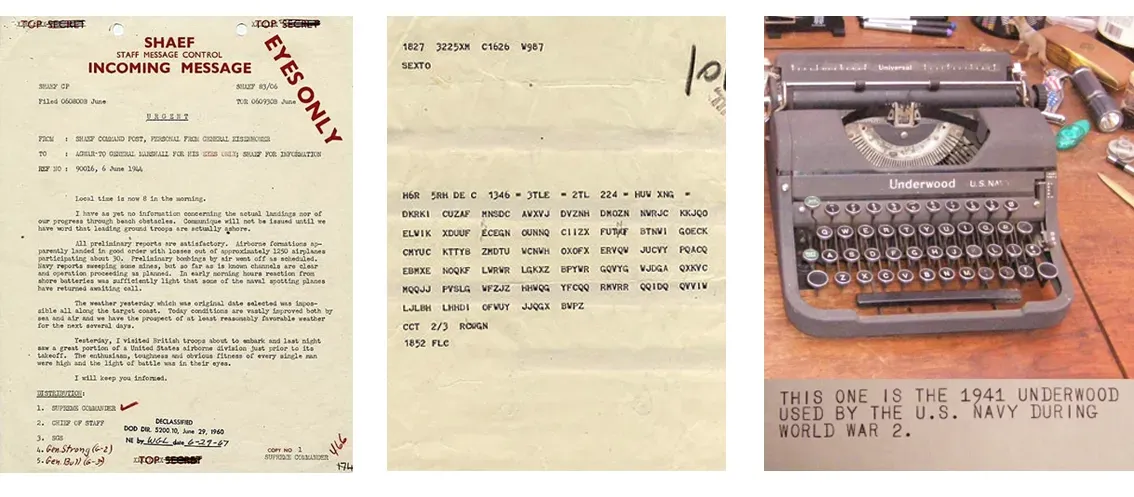 TOP SECRET
TOP SECRET
SHAEF
STAFF MESSAGE CONTROL
INCOMING MESSAGE
EYES ONLY
SHAEF CP
SHAEF 83/06
Filed 060800B June
TOR 060930B June
URGENT
FROM : SHAEF COMMAND POST, PERSONAL FROM GENERAL EISENHOWER
TO : AGWAR-TO GENERAL MARSHALL FOR HIS EYES ONLY; SHAEF FOR INFORMATION
REF NO : 90016, 6 June 1944
Local time is now 8 in the morning.
I have as yet no information concerning the actual landings nor of
our progress through beach obstacles. Communique will not be issued until we
have word that leading ground troops are actually ashore.
All preliminary reports are satisfactory. Airborne formations ap-
parently landed in good order with losses out of approximately 1250 airplanes
participating about 30. Preliminary bombings by air went off as scheduled.
Navy reports sweeping some mines, but so far as is known channels are clear
and operation proceeding as planned. In early morning hours reaction from
shore batteries was sufficiently light that some of the naval spotting planes
have returned awaiting call.
The weather yesterday which was original date selected was impos-
sible all along the target coast. Today conditions are vastly improved both by
sea and air and we have the prospect of at least reasonably favorable weather
for the next several days.
Yesterday, I visited British troops about to embark and last night
saw a great portion of a United States airborne division just prior to its
takeoff. The enthusiasm, toughness and obvious fitness of every single man
were high and the light of battle was in their eyes.
I will keep you informed.
DISTRIBUTION:
1. SUPREME COMMANDER
2. CHIEF OF STAFF
3. SGS
4. Gen. Strong (G-2)
5. Gen. Bull (G-3)
DECLASSIFIED
DOD DIR. 5200.10, June 29, 1960
NE by WGL date 6-29-67
TOP SECRET
COPY NO 1
SUPREME COMMANDER
466
174
1827 3225XM C1626 W987
SEXTO
H6R 5RH DE C 1346 = 3TLE = 2TL 224 = HUW XNG =
DKRKI CUZAF MNSDC AWXVJ DVZNH DMOZN NWRJC KKJQO
ELWIK XDUUF ECEGN OUNNQ CIIZX FUTKF BTNWI GOECK
CMYUC KTTYB ZMDTU WCNWH OXOFX ERVQW JUCVY PQACQ
EBMXE NOQKF LWRWR LGKXZ BPYWR GQVYG WJDGA QXKVC
MQQJJ PVSLG WFZJZ HHWQG YFCQQ RMVRR QQIDQ QVVIW
LJLBH LHHDI OFWUY JJQGX BWPZ
CCT 2/3 ROWGN
1852 FLC
Universal
Underwood U.S. NAVY
Q W E R T Y U I O P
A S D F G H J K L
Z X C V B N M
THIS ONE IS THE 1941 UNDERWOOD
USED BY THE U.S. NAVY DURING
WORLD WAR 2.